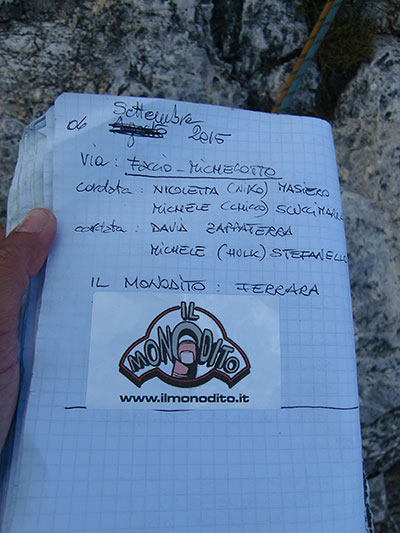 Settembre
06 Agosto 2015
Via: Faccio - Michelotto
cordata: NICOLETTA (NIKO) MASIERO
MICHELE (CHICO)
cordata: DAVID ZAPPATERRA
MICHELE (HULK) STEFANELLI
IL MONODITO: FERRARA
IL
MONODITO
www.ilmonodito.it